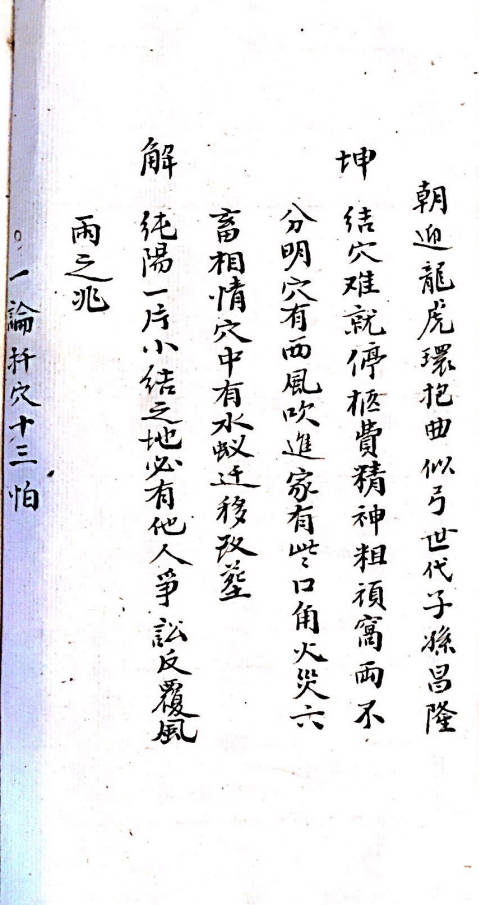 朝迎龍虎環抱曲似弓世代子孫昌隆
坤 结穴难就停柩費精神粗頑窩両不
分明穴有西風吹進家有些口角火災六
畜相情穴中有水蚁迁移改塟
解 纯陽一片小结之地必有他人爭訟反覆風
雨之兆
一論扦穴十三怕